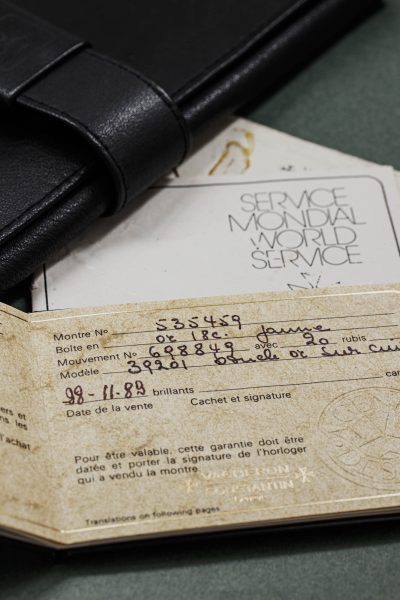 SERVICE
MONDIAL
WORLD
SERVICE
Montre No 535459
Boîte en or 18c. jaune
Mouvement No 698849 avec 20 rubis
Modèle 39201 boucle or sur cui
brillants
28-11-89
Date de la vente Cachet et signature
Pour être valable, cette garantie doit être
datée et porter la signature de l'horloger
qui a vendu la montre.
VACHERON
CONSTANTIN
Translations on following pages
ers et
les
l'achat